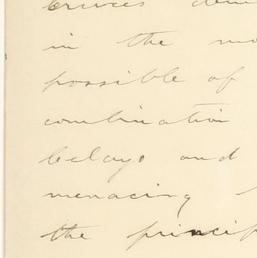 in the mo
possible of
combination
belays and
menacing
the princip